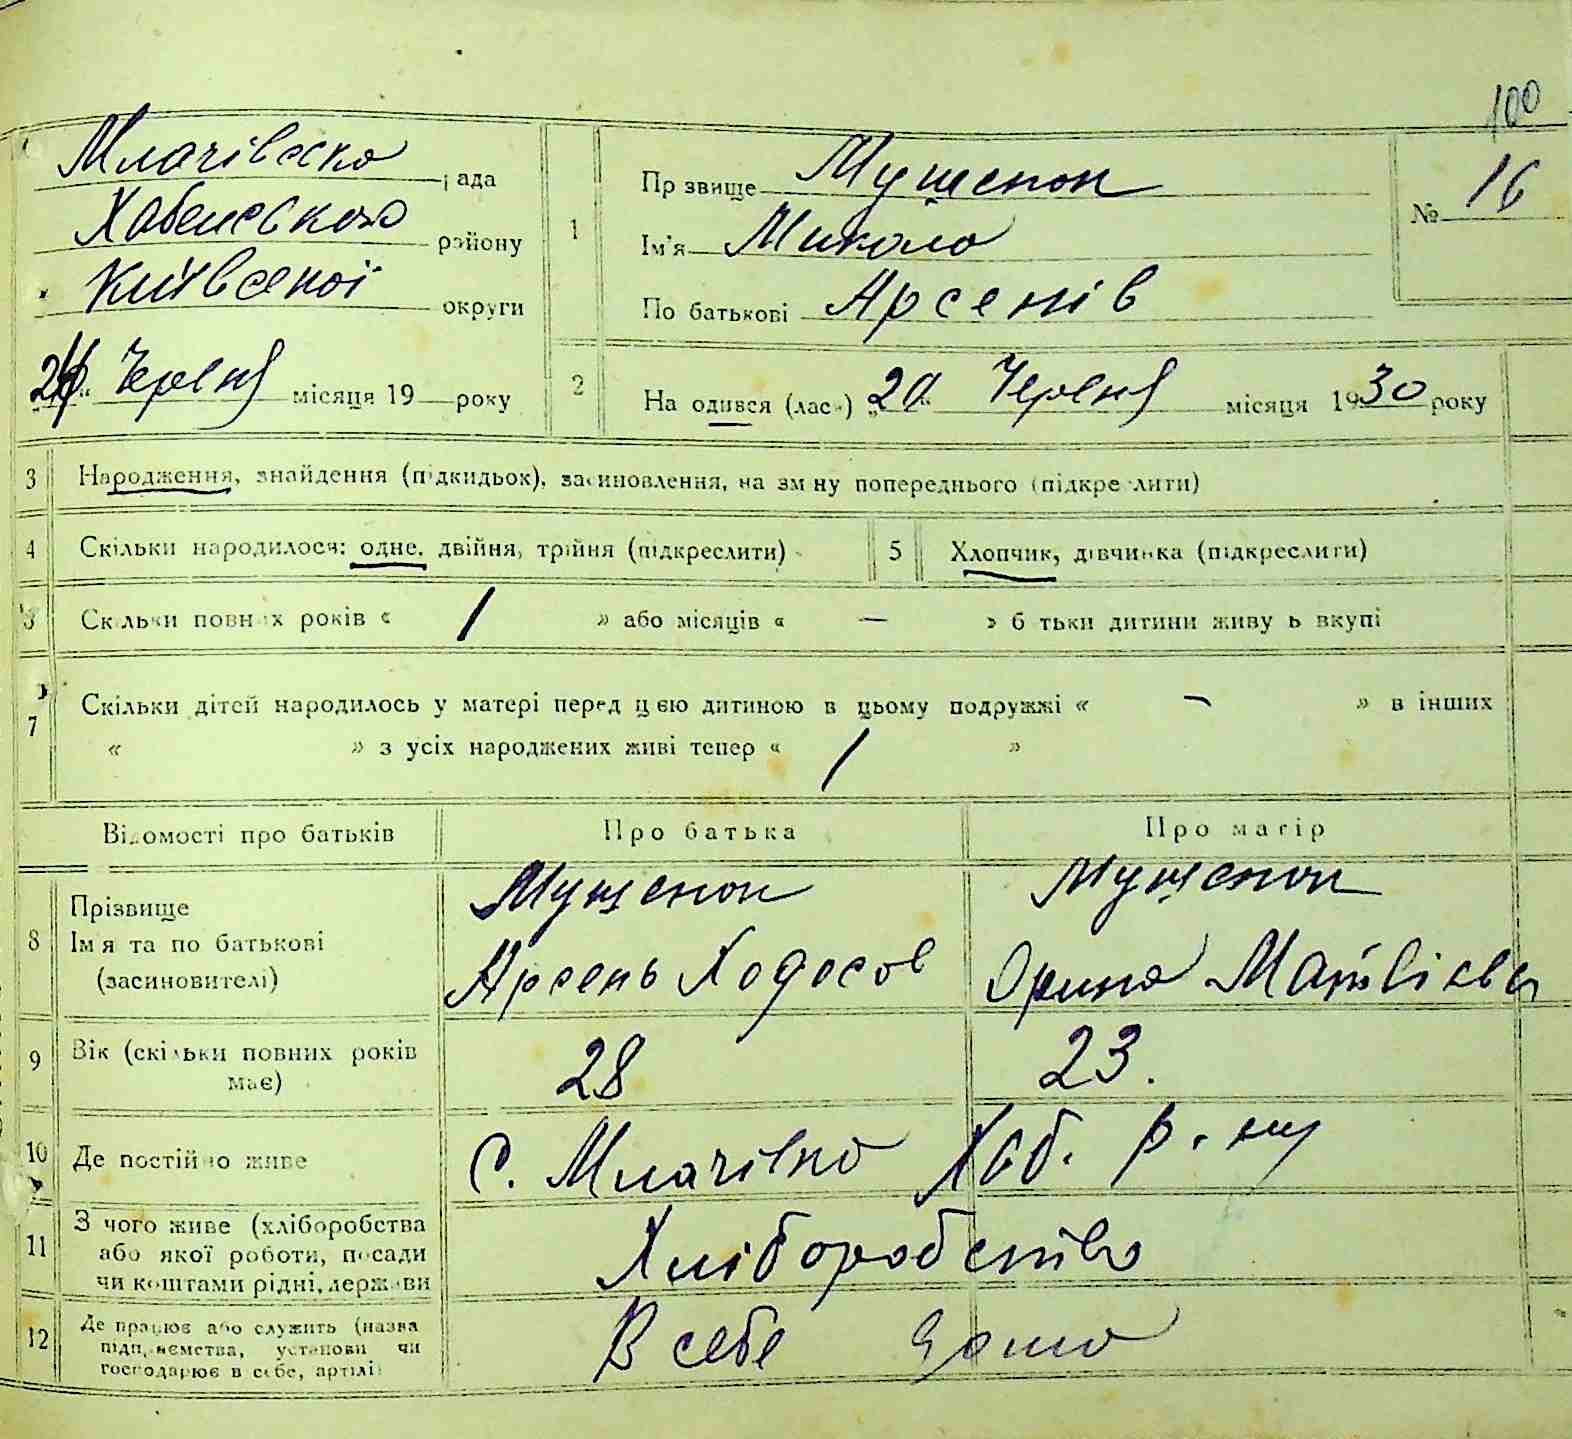 100
Млачівська рада
Хабенського району
Київської округи
Червня місяця 19 року
1
Прізвище Мушенок
Ім'я Микола
По батькові Арсенів
№ 16
2
На одився (лась) „20“ Червня місяця 1930 року
3 Народження, знайдення (підкидьок), засиновлення, на зміну попереднього (підкреслити)
4 Скільки народилося: одне, двійня, трійня (підкреслити)
5 Хлопчик, дівчинка (підкреслити)
6 Скільки повних років « 1 » або місяців « — » батьки дитини живуть вкупі
7 Скільки дітей народилось у матері перед цією дитиною в цьому подружжі « – » в інших
« » з усіх народжених живі тепер « 1 »
Відомості про батьків Про батька Про матір
8 Прізвище Мущенок Мущенок
Ім'я та по батькові Арсень Ходосов Орина Матвієва
(засиновителі)
9 Вік (скільки повних років має) 28 23.
10 Де постійно живе с. Млачівка Хаб. р. ну
11 З чого живе (хліборобства
або якої роботи, посади
чи коштами рідні, держави
Хліборобство
12 Де працює або служить (назва
підприємства, установи чи
господарює в себе, артілі)
В себе дома